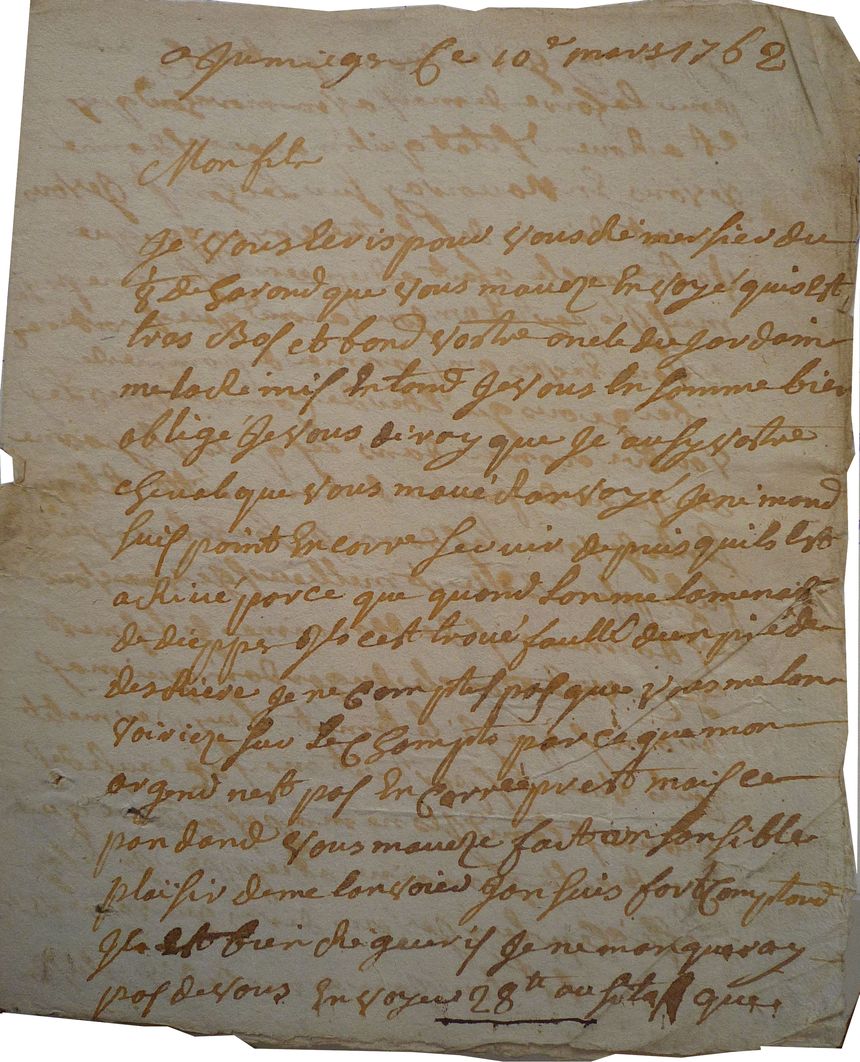 a Jumiege Ce 10e mars 1762
Mon fils
Je vous Ecris pour vous Remersier du
de harend que vous maveze Envoyé quis Est
tras Bos et bond vostre oncle du Jardain
me la Remis En tend Je vous En somme bien
obligé Je vous diray que Je ausy vostre
cheval que vous mavé Ranvoyé Je ni mend
suis point Encorre servir depuis quils Est
arivé parce que quand Lon me lamenait
de dieppe Ils cest trouvé foullé dun pié de
desriere Je ne Comptes pas que vous me lan
voirieze sur Le Champs parce que mon
argend nest pas En Corre prest mais ce
pandand vous maveze fait un sansible
plaisir de me lanvoier Jan suis fort Comptend
Ils Est bien Regueris Je ne manqueray
pas de vous Envoyer 28tt au sitost que